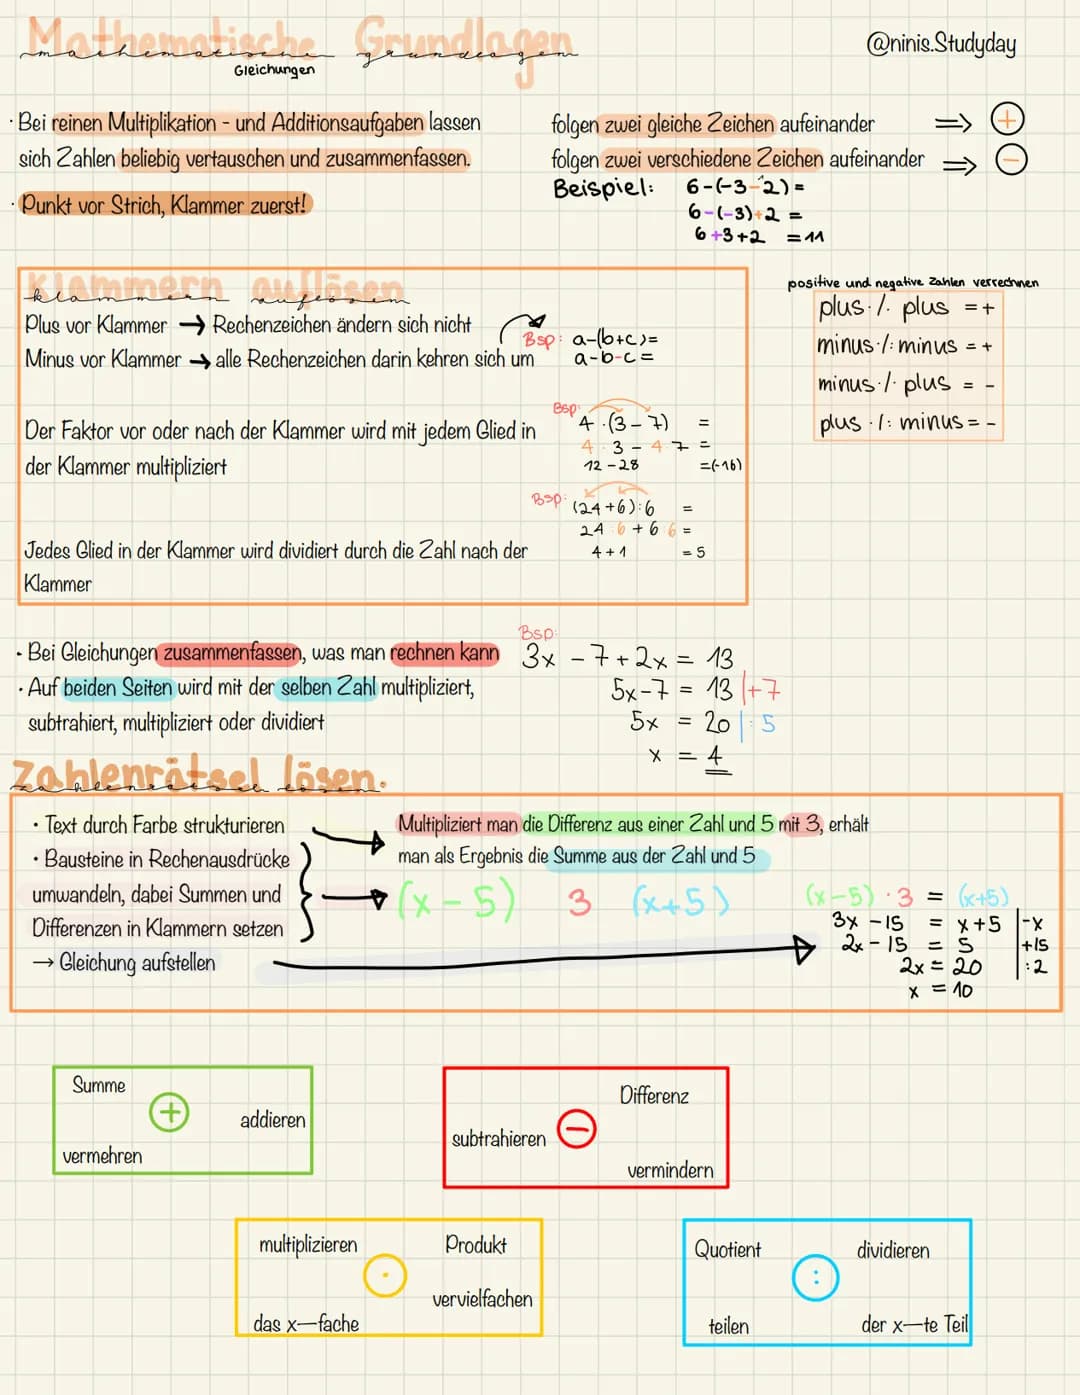 Mathematische Grundlagen
mathematische grundlagen
Gleichungen
@ninis.Studyday
· Bei reinen Multiplikation - und Additionsaufgaben lassen
sich Zahlen beliebig vertauschen und zusammenfassen.
· Punkt vor Strich, Klammer zuerst!
folgen zwei gleiche Zeichen aufeinander ⇒ +
folgen zwei verschiedene Zeichen aufeinander ⇒ −
Beispiel: 6-(-3-2)=
6-(-3)+2 =
6+3+2 =11
Klammern auflösen
klammern auflösen
Plus vor Klammer → Rechenzeichen ändern sich nicht
Minus vor Klammer → alle Rechenzeichen darin kehren sich um
Bsp: a-(b+c)=
a-b-c=
Der Faktor vor oder nach der Klammer wird mit jedem Glied in
der Klammer multipliziert
Bsp:
4·(3-7) =
4·3-4·7 =
12-28 =(-16)
Jedes Glied in der Klammer wird dividiert durch die Zahl nach der
Klammer
Bsp: (24+6):6 =
24:6+6:6 =
4+1 =5
positive und negative Zahlen verrechnen
plus·/: plus =+
minus·/: minus =+
minus·/: plus = -
plus ·/: minus= -
· Bei Gleichungen zusammenfassen, was man rechnen kann
· Auf beiden Seiten wird mit der selben Zahl multipliziert,
subtrahiert, multipliziert oder dividiert
Bsp:
3x -7+2x = 13
5x-7 = 13 |+7
5x = 20 | : 5
x = 4
Zahlenrätsel lösen.
zahlenrätsel lösen.
· Text durch Farbe strukturieren
· Bausteine in Rechenausdrücke
umwandeln, dabei Summen und
Differenzen in Klammern setzen
→ Gleichung aufstellen
Multipliziert man die Differenz aus einer Zahl und 5 mit 3, erhält
man als Ergebnis die Summe aus der Zahl und 5
(x-5) 3 (x+5)
(x-5)·3 = (x+5)
3x -15 = x+5 |-x
2x-15 = 5 |+15
2x = 20 |:2
x = 10
Summe
+
addieren
vermehren
Differenz
−
subtrahieren
vermindern
multiplizieren
Produkt
·
vervielfachen
das x—fache
Quotient
dividieren
:
teilen
der x—te Teil